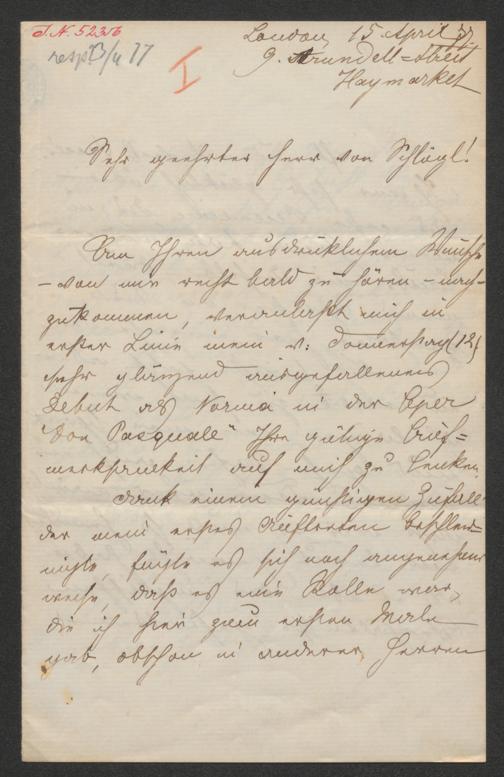 I. N. 52356
resp. 23/4 77
I
London, 15 April 77
9. Arundell=Street
Haymarket
Sehr geehrter Herr von Schlögl!
Um Ihren ausdrücklichen Wunsche
– von mir recht bald zu hören – nach-
zukommen, veranlaßt mich in
erster Linie mein v: Donnerstag (12)
sehr glänzend ausgefallenes
Debut als Norina in der Oper
"Don Pasquale" Ihre gütige Auf=
merksamkeit auf mich zu lenken.
Dank einem günstigen Zufall
der mein erstes Auftreten beschleu-
nigte, fügte es sich noch angenehmer
weise, daß es eine Rolle war,
die ich hier zum ersten Male
gab, obschon in anderer Herren